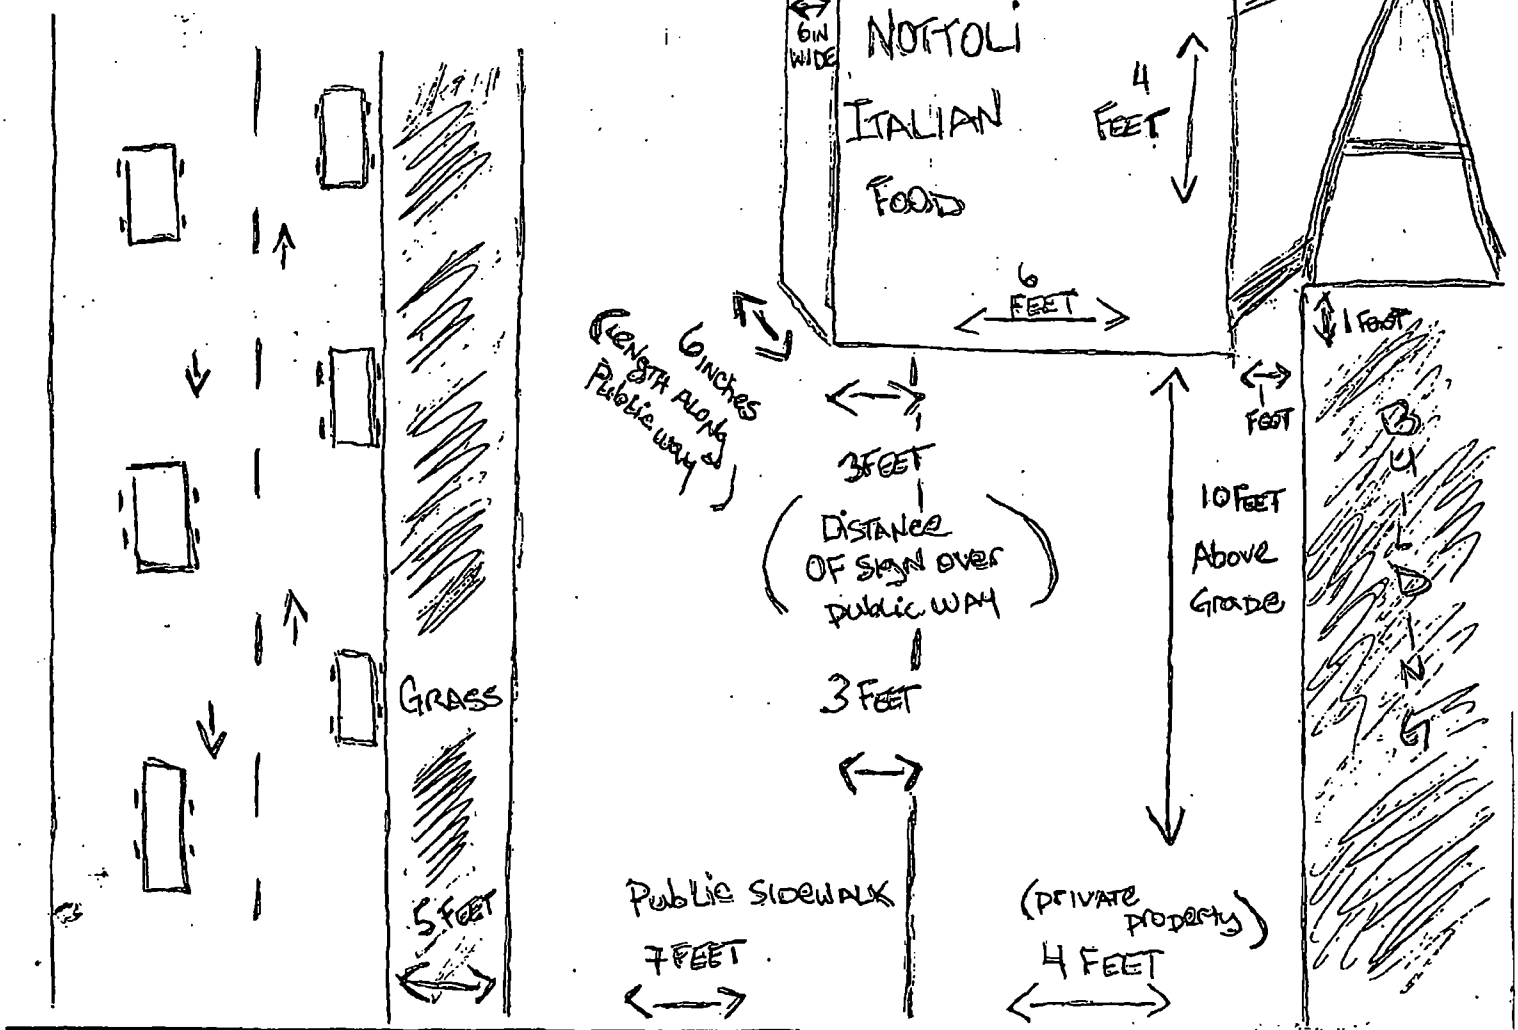 6IN
WIDE
NOTTOLI
ITALIAN
FOOD
4
FEET
6
FEET
1 FOOT
6 INCHES
(LENGTH ALONG
Public way)
1
FOOT
3 FEET
(DISTANCE
OF SIGN OVER
public WAY)
3 FEET
10 FEET
Above
GRADE
BUILDING
GRASS
5 FEET
Public SIDEWALK
7 FEET
(private
property)
4 FEET